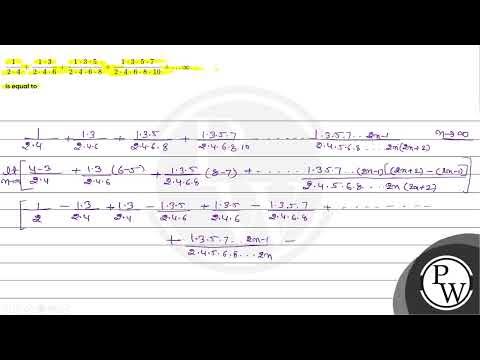 1/(2·4) + (1·3)/(2·4·6) + (1·3·5)/(2·4·6·8) + (1·3·5·7)/(2·4·6·8·10) + ....∞
is equal to
1/(2·4) + (1·3)/(2·4·6) + (1·3·5)/(2·4·6·8) + (1·3·5·7)/(2·4·6·8·10) ........ (1·3·5·7.. 2n-1)/(2·4·5·6·8... 2n(2n+2)) n→∞
lt n→∞ [(4-3)/(2·4) + (1·3)/(2·4·6) (6-5) + (1·3·5)/(2·4·6·8) (8-7) + ....... (1·3·5·7... (2n-1)[(2n+2)-(2n-1)])/(2·4·5·6·8... 2n (2n+2))]
[1/2 - (1·3)/(2·4) + (1·3)/(2·4) - (1·3·5)/(2·4·6) + (1·3·5)/(2·4·6) - (1·3·5·7)/(2·4·6·8) + ----------
+ (1·3·5·7.. 2n-1)/(2·4·5·6·8... 2n) -
P
W